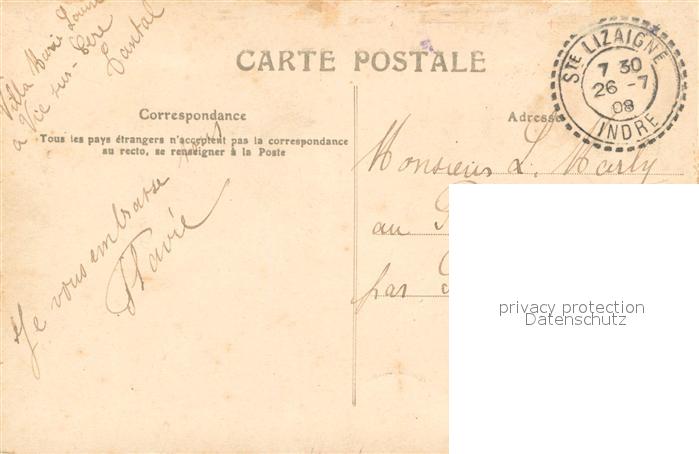 Villa Marie Louise
à Vic sur-Cère
Cantal
CARTE POSTALE
STE LIZAIGNE
7 30
26 -7
08
INDRE
Correspondance
Tous les pays étrangers n'acceptent pas la correspondance
au recto, se renseigner à la Poste
Adresse
Je vous embrasse tous
Flavie
Monsieur L. Marly
au
par
privacy protection
Datenschutz